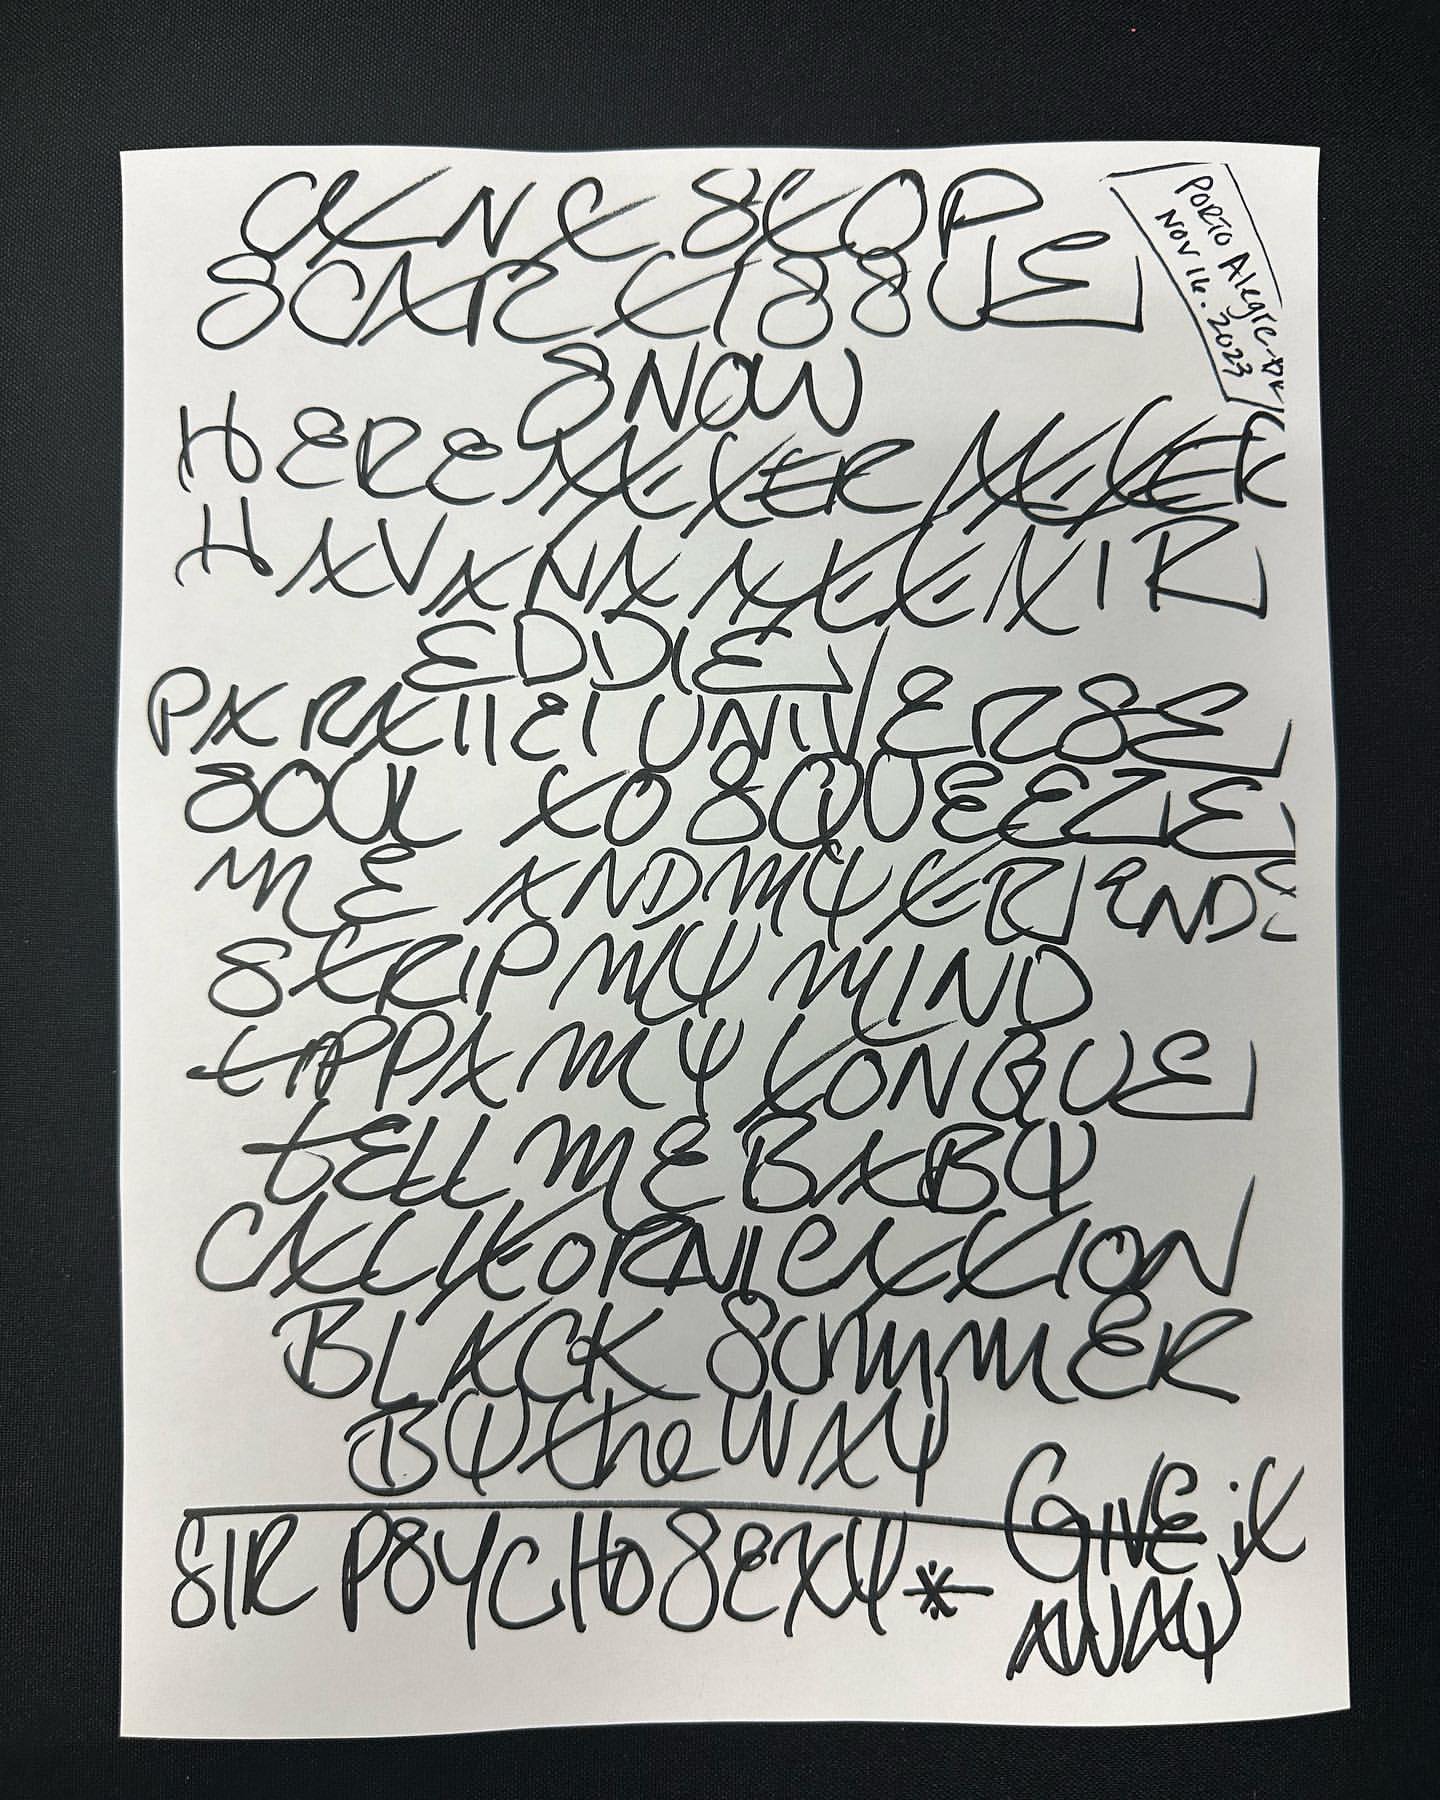 PORTO Alegre-BR
NOV 16. 2023
CANT STOP
SCAR TISSUE
SNOW
HERE AFTER AFTER
HAVANA AFFAIR
EDDIE
PARALLEL UNIVERSE
SOUL TO SQUEEZE
ME AND MY FRIENDS
STRIP MY MIND
tIPPA MY TONGUE
tELL ME BABY
CALIFORNICATION
BLACK SUMMER
BY the WAY
SIR PSYCHO SEXY *
GIVE it
AWAY